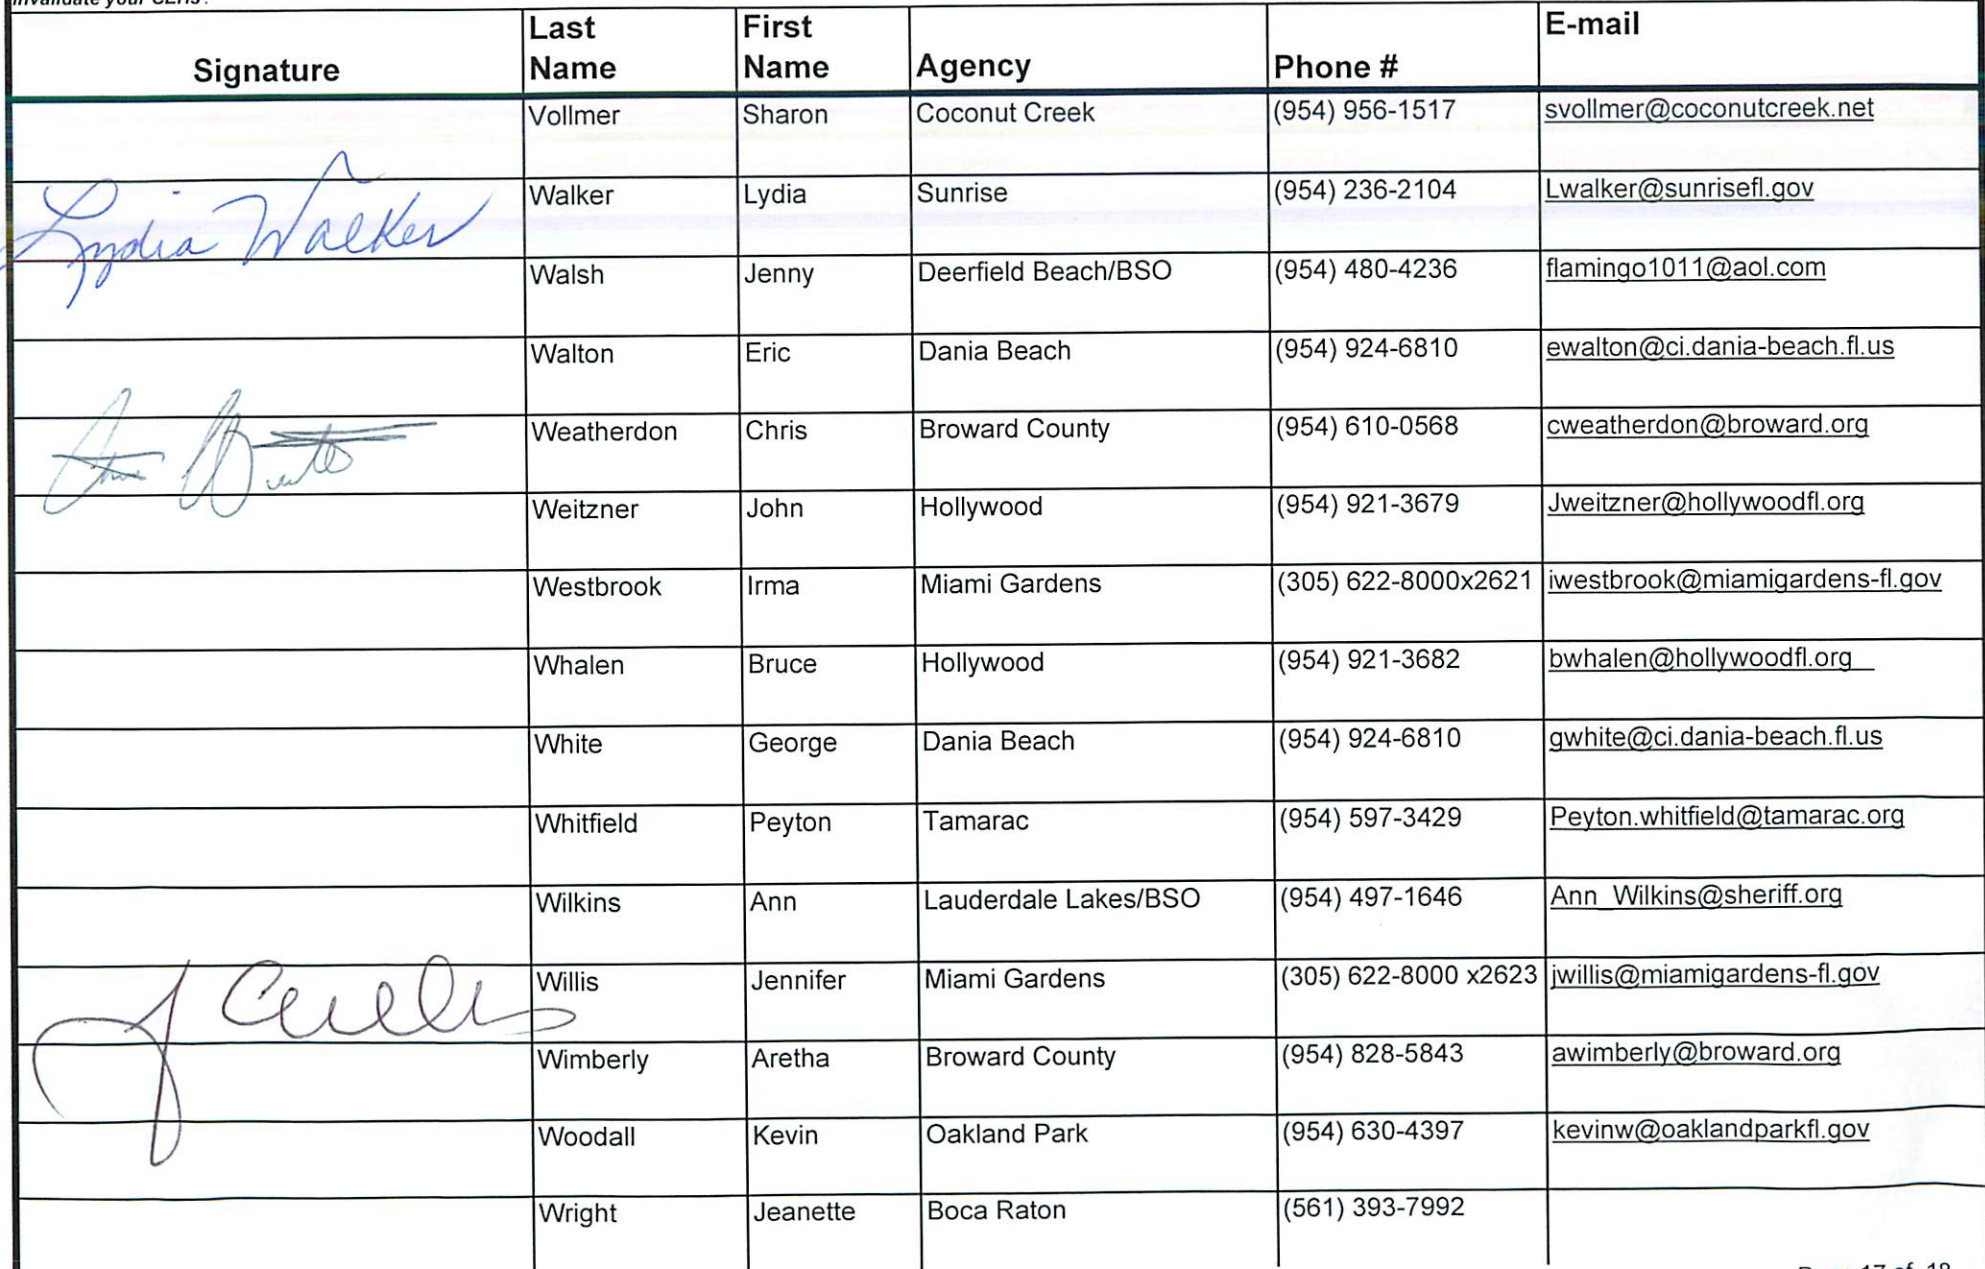 invalidate your CEHs.
Signature Last Name First Name Agency Phone # E-mail
Vollmer Sharon Coconut Creek (954) 956-1517 svollmer@coconutcreek.net
Lydia Walker Walker Lydia Sunrise (954) 236-2104 Lwalker@sunrisefl.gov
Walsh Jenny Deerfield Beach/BSO (954) 480-4236 flamingo1011@aol.com
Walton Eric Dania Beach (954) 924-6810 ewalton@ci.dania-beach.fl.us
Weatherdon Chris Broward County (954) 610-0568 cweatherdon@broward.org
Weitzner John Hollywood (954) 921-3679 Jweitzner@hollywoodfl.org
Westbrook Irma Miami Gardens (305) 622-8000x2621 iwestbrook@miamigardens-fl.gov
Whalen Bruce Hollywood (954) 921-3682 bwhalen@hollywoodfl.org
White George Dania Beach (954) 924-6810 gwhite@ci.dania-beach.fl.us
Whitfield Peyton Tamarac (954) 597-3429 Peyton.whitfield@tamarac.org
Wilkins Ann Lauderdale Lakes/BSO (954) 497-1646 Ann_Wilkins@sheriff.org
Willis Jennifer Miami Gardens (305) 622-8000 x2623 jwillis@miamigardens-fl.gov
Wimberly Aretha Broward County (954) 828-5843 awimberly@broward.org
Woodall Kevin Oakland Park (954) 630-4397 kevinw@oaklandparkfl.gov
Wright Jeanette Boca Raton (561) 393-7992
Page 17 of 18